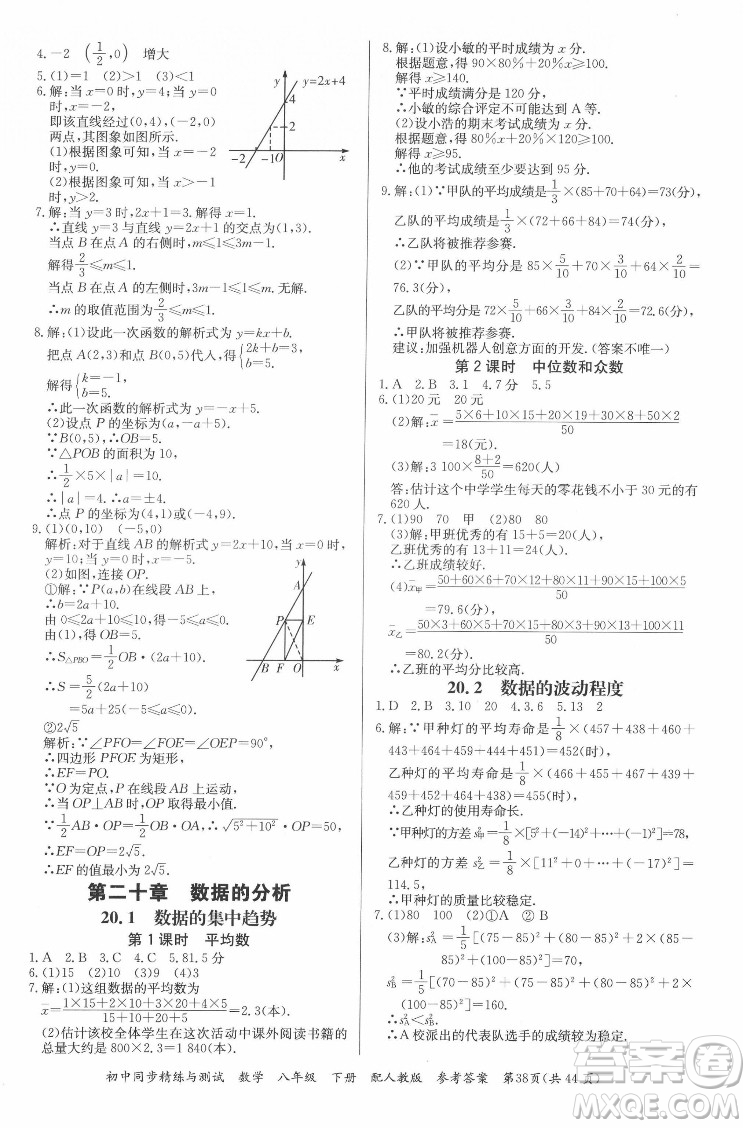 4.－2　(1/2,0)　增大
5.(1)＝1　(2)＞1　(3)＜1
6.解:当 x＝0 时,y＝4;当 y＝0
时,x＝－2,
即该直线经过(0,4),(－2,0)
两点,其图象如图所示.
(1)根据图象可知,当 x＝－1
时,y＝2.
(2)根据图象可知,当 x＞－1 时,y＞2.
y
y=2x+4
4
2
－2
－1
O
x
7.解:当 y＝3 时,2x＋1＝3,解得 x＝1.
∴直线 y＝3 与直线 y＝2x＋1 的交点为(1,3).
当点 B 在点 A 的右侧时,m≤1≤3m－1.
解得 2/3≤m≤1.
当点 B 在点 A 的左侧时,m 无解.
∴m 的取值范围为 2/3≤m≤1.
8.解:(1)设此一次函数的解析式为 y＝kx＋b.
把点 A(2,3)和点 B(0,5)代入,得{2k＋b＝3, b＝5.
解得{k＝－1, b＝5.
∴此一次函数的解析式为 y＝－x＋5.
(2)设点 P 的坐标为(a,－a＋5).
∵B(0,5),∴OB＝5.
∵△POB 的面积为 10,
∴1/2×5×|a|＝10.
∴|a|＝4.∴a＝±4.
∴点 P 的坐标为(4,1)或(－4,9).
9.(1)(0,10)　(－5,0)
解析:对于直线 AB 的解析式 y＝2x＋10,当 x＝0 时,
y＝10;当 y＝0 时,x＝－5.
(2)如图,连接 OP.
①解:∵P(a,b)在线段 AB 上,
∴b＝2a＋10.
由 0≤2a＋10≤10,
得－5≤a≤0.
由(1),得 OB＝5.
∴S△PBO＝1/2OB·(2a＋10).
∴S＝5/2(2a＋10)＝
5a＋25(－5≤a≤0).
y
A
P
E
B
F
O
x
②2√5
解析:∵∠PFO＝∠FOE＝∠OEP＝90°,
∴四边形 PFOE 为矩形.
∴EF＝PO.
∵O 为定点,P 在线段 AB 上运动,
∴当 OP⊥AB 时,OP 取得最小值.
∵1/2AB·OP＝1/2OB·OA,∴√(5²＋10²)·OP＝50,
∴EF＝OP＝2√5.
∴EF 的值最小为 2√5.
第二十章　数据的分析
20.1　数据的集中趋势
第 1 课时　平均数
1.A　2.B　3.C　4.B　5.81.5 分
6.(1)15　(2)10　(3)9　(4)3
7.解:(1)这组数据的平均数为
x̄＝(1×15＋2×10＋3×20＋4×5)/(15＋10＋20＋5)＝2.3(本).
(2)估计该校全体学生在这次活动中课外阅读书籍的
总量大约是 800×2.3＝1 840(本).
8.解:(1)设小敏的平时成绩为 x 分.
根据题意,得 90×80%＋20%x≥100.
解得 x≥140.
∵平时成绩满分是 120 分,
∴小敏的综合评定不可能达到 A 等.
(2)设小浩的期末考试成绩为 x 分.
根据题意,得 120×20%＋80%x≥100.
解得 x≥95.
∴他的考试成绩至少达到 95 分.
9.解:(1)∵甲队的平均成绩是 1/3×(85＋70＋64)＝
73(分),
乙队的平均成绩是 1/3×(72＋66＋84)＝74(分),
∴乙队将被推荐参赛.
(2)∵甲队的平均成绩为 85×5/10＋70×2/10＋64×3/10＝
76.3(分),
乙队的平均成绩为 72×5/10＋66×2/10＋84×3/10＝74.4(分),
∴甲队将被推荐参赛.
建议:加强机器人创意方面的开发.(答案不唯一)
第 2 课时　中位数和众数
1.A　2.B　3.1　4.7 分　5.5
6.(1)20 元　20 元
(2)解:x̄＝(5×6＋10×15＋20×19＋30×8＋50×2)/50
＝18(元).
(3)解:3 100×(8＋2)/50＝620(人)
答:估计这个中学学生每天的零花钱不小于 30 元的有
620 人.
7.(1)90　70　甲　(2)80　80
(3)解:甲班优秀的有 15＋5＝20(人),
乙班优秀的有 13＋11＝24(人).
∴乙班成绩较好.
(4)x̄甲＝(50＋60×6＋70×12＋80×11＋90×15＋100×5)/50
＝79.6(分).
x̄乙＝(50×3＋60×5＋70×15＋80×3＋90×13＋100×11)/50＝
80.2(分).
∴乙班的平均分比较高.
20.2　数据的波动程度
1.D　2.B　3.10　20　4.3.6　5.13　2
6.解:∵甲种灯的平均寿命是 1/8×(457＋438＋460＋
443＋464＋459＋444＋451)＝452(时),
乙种灯的平均寿命是 1/8×(466＋455＋467＋439＋
459＋452＋464＋438)＝455(时),
∴乙种灯的使用寿命长.
∵甲种灯的方差 s²甲＝1/8×(25＋14²＋…＋1)＝77,
乙种灯的方差 s²乙＝1/8×(11²＋0＋…＋17²)＝
114.5,
∴甲种灯的质量比较稳定.
7.(1)80　100　(2)①A　②B
(3)解:s²A＝1/5×[(75－85)²＋(80－85)²＋(85－
85)²＋(85－85)²＋(100－85)²]＝70.
s²B＝1/5×[(70－85)²＋(100－85)²＋(100－85)²＋
(75－85)²＋(80－85)²]＝160.
∴s²A＜s²B.
∴A 校派出的代表队选手的成绩较为稳定.
初中同步精练与测试　数学　八年级　下册　配人教版　参考答案　第38页(共 44 页)